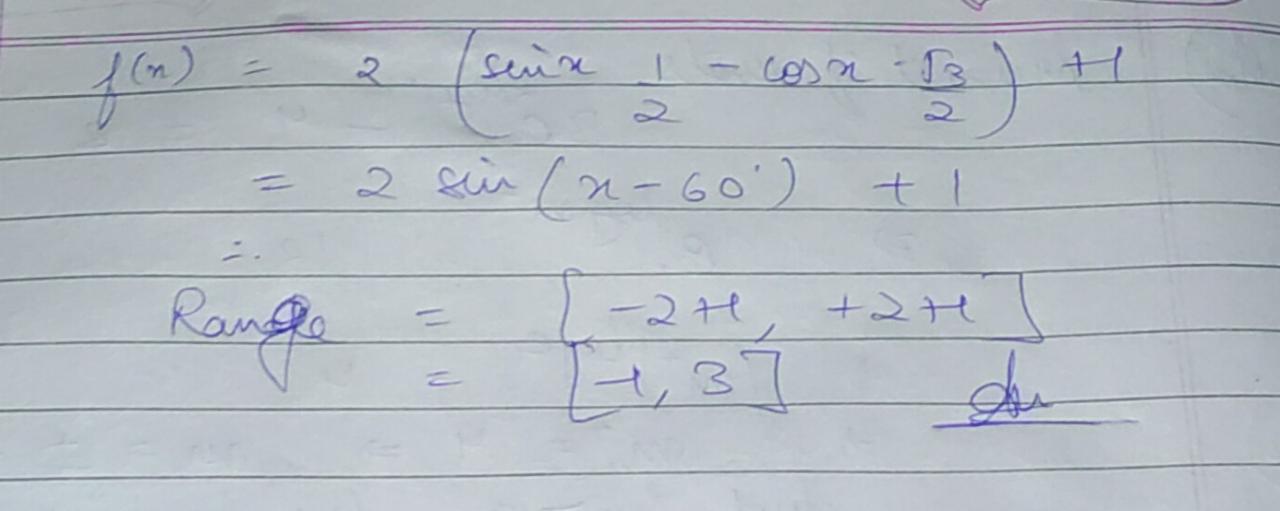 f(x) = 2 (sin x 1/2 - cos x · √3/2) + 1
= 2 sin (x - 60°) + 1
∴
Range = [-2+1, +2+1]
= [-1, 3] Ans